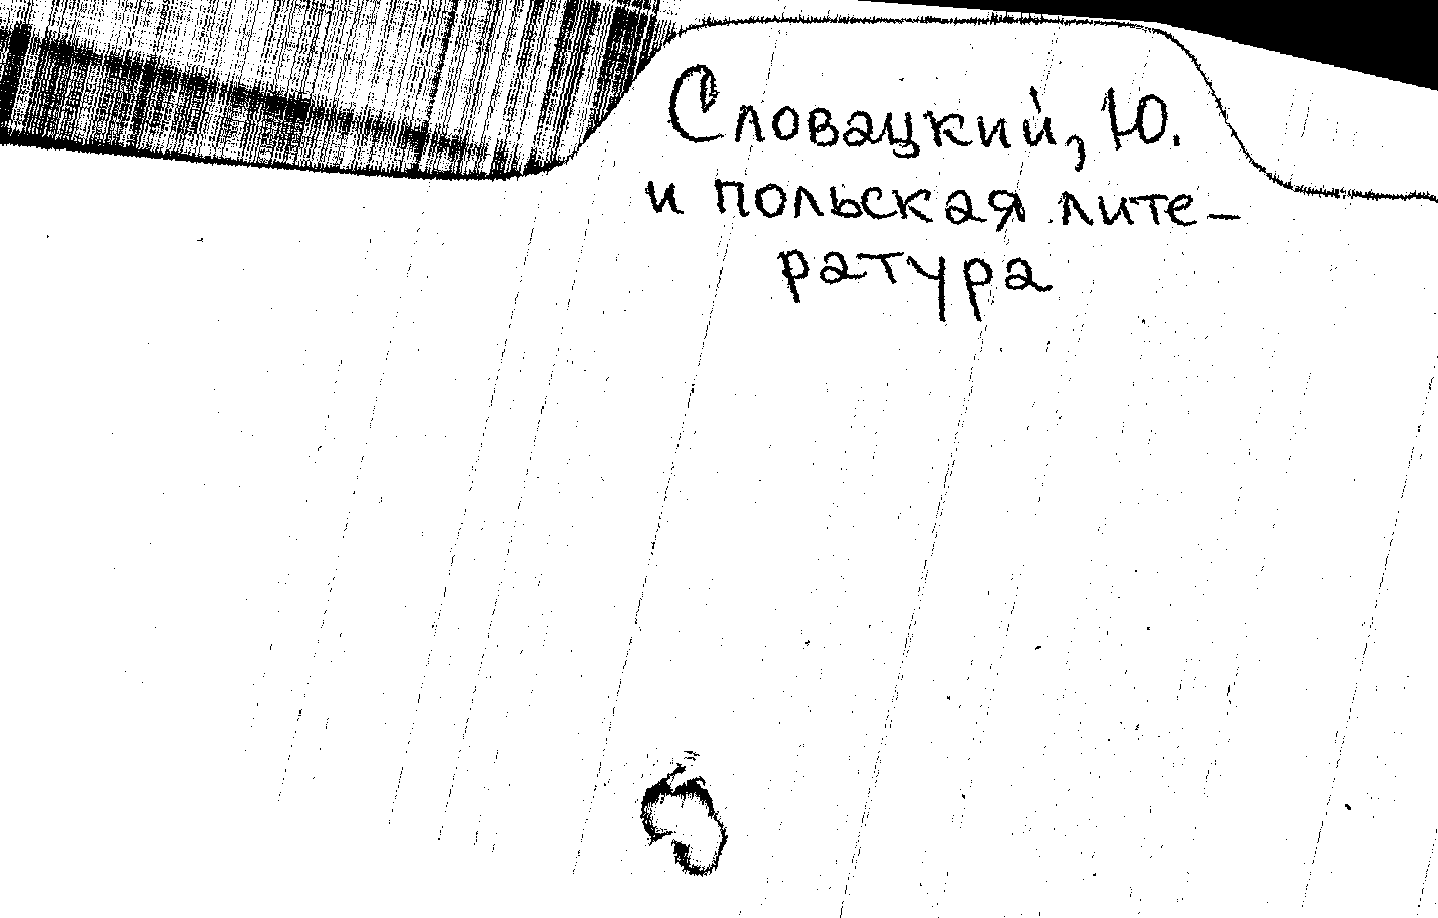 Словацкий, Ю.
и польская лите-
ратура